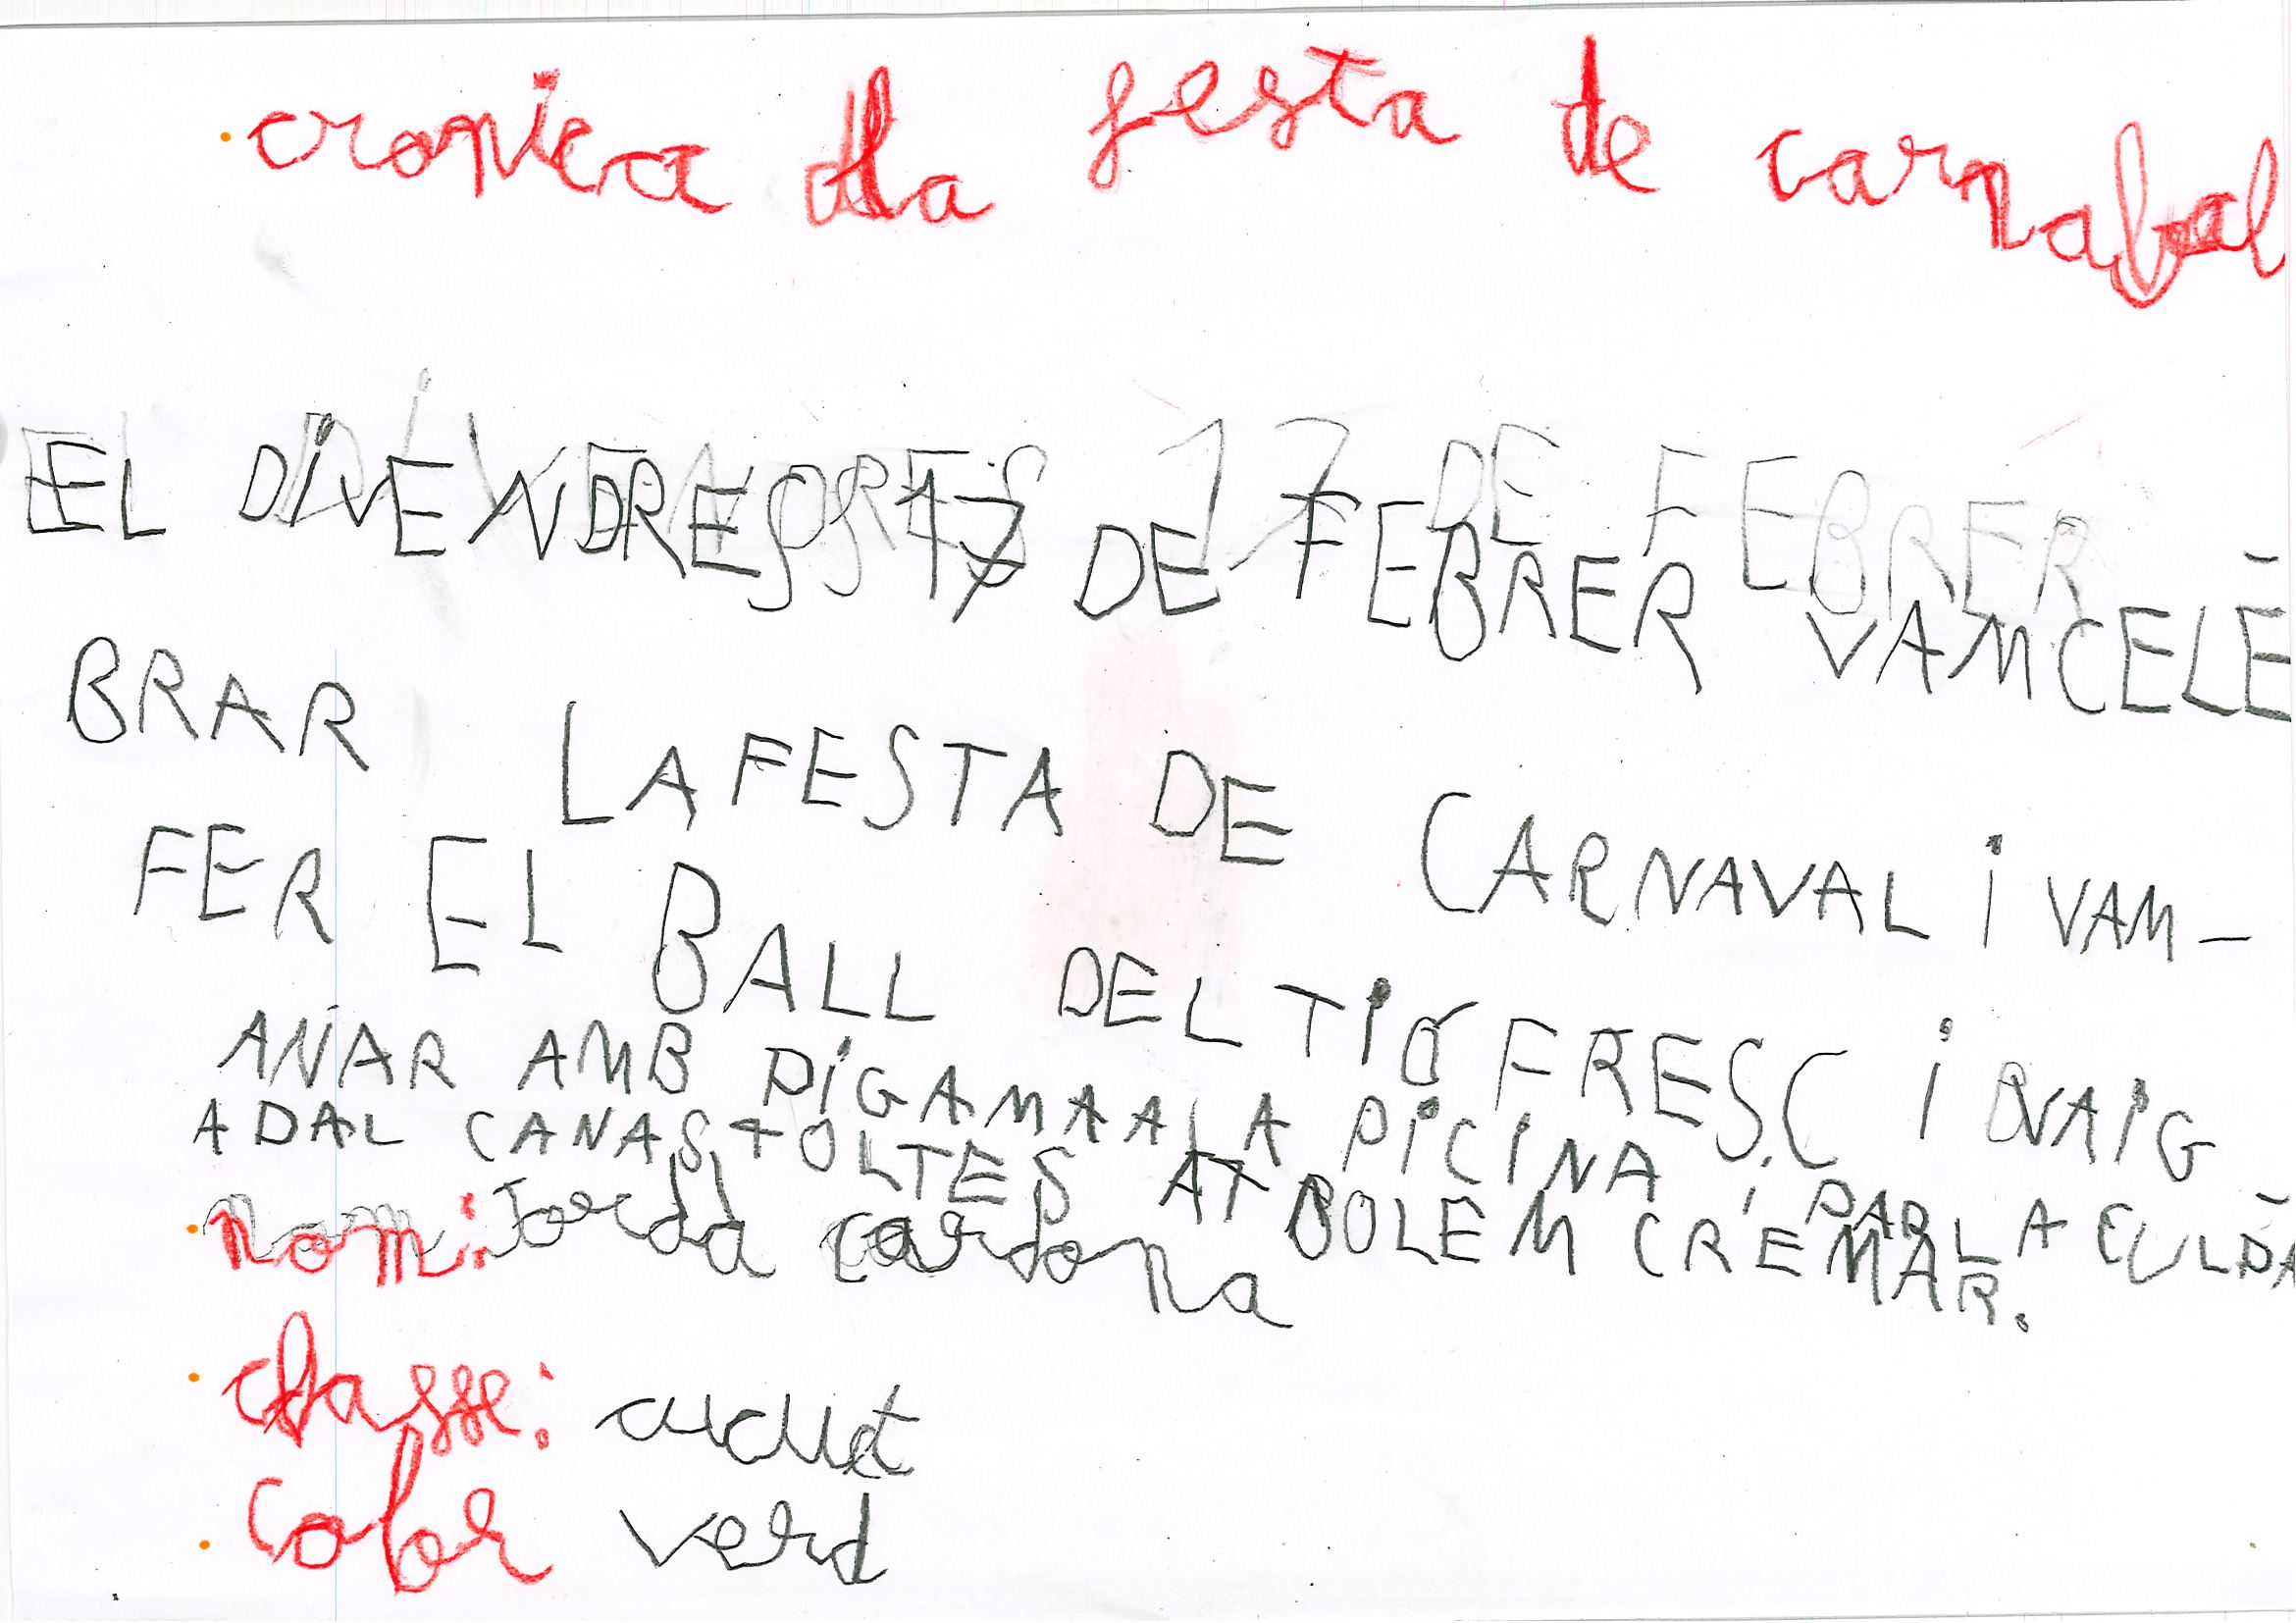 cronica dla festa de carnabal
EL DIVENDRES 17 DE FEBRER VAM CELE-
BRAR LA FESTA DE CARNAVAL i VAM-
FER EL BALL DEL TIÓ FRESC i VAIG
ANAR AMB PIGAMA A LA PICINA i PAR LA CULPA-
ADAL CANASTOLTES AT BOLEM CREMAR.
nom: Jorda cardona
classe: cucut
color verd